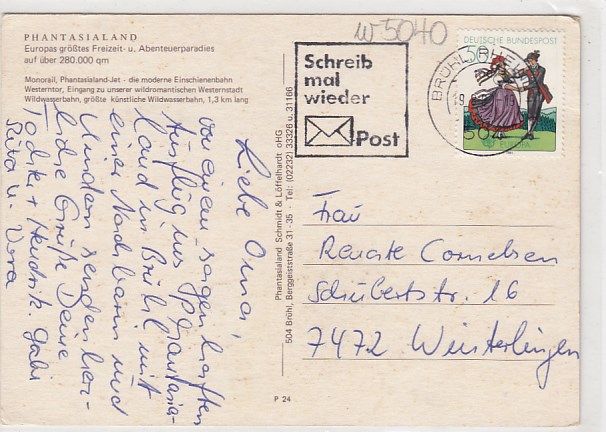 PHANTASIALAND
Europas größtes Freizeit- u. Abenteuerparadies
auf über 280.000 qm
Monorail, Phantasialand-Jet - die moderne Einschienenbahn
Westerntor, Eingang zu unserer wildromantischen Westernstadt
Wildwasserbahn, größte künstliche Wildwasserbahn, 1,3 km lang
Liebe Oma,
von einem sagenhaften
Ausflug ins Phantasia-
land in Brühl mit
einer Nachbarin und
Kindern senden herz-
liche Grüße Deine
Tochter + Hendrik Gabi
u. Vera
Phantasialand Schmidt & Löffelhardt oHG
504 Brühl, Berggeiststraße 31-35 · Tel: (02232) 33326 u. 31166
P 24
w 5040
Schreib
mal
wieder
Post
BRÜHL, RHEINL
504
DEUTSCHE BUNDESPOST
50
EUROPA
Frau
Renate Cornelsen
Schubertstr. 16
7472 Winterlingen